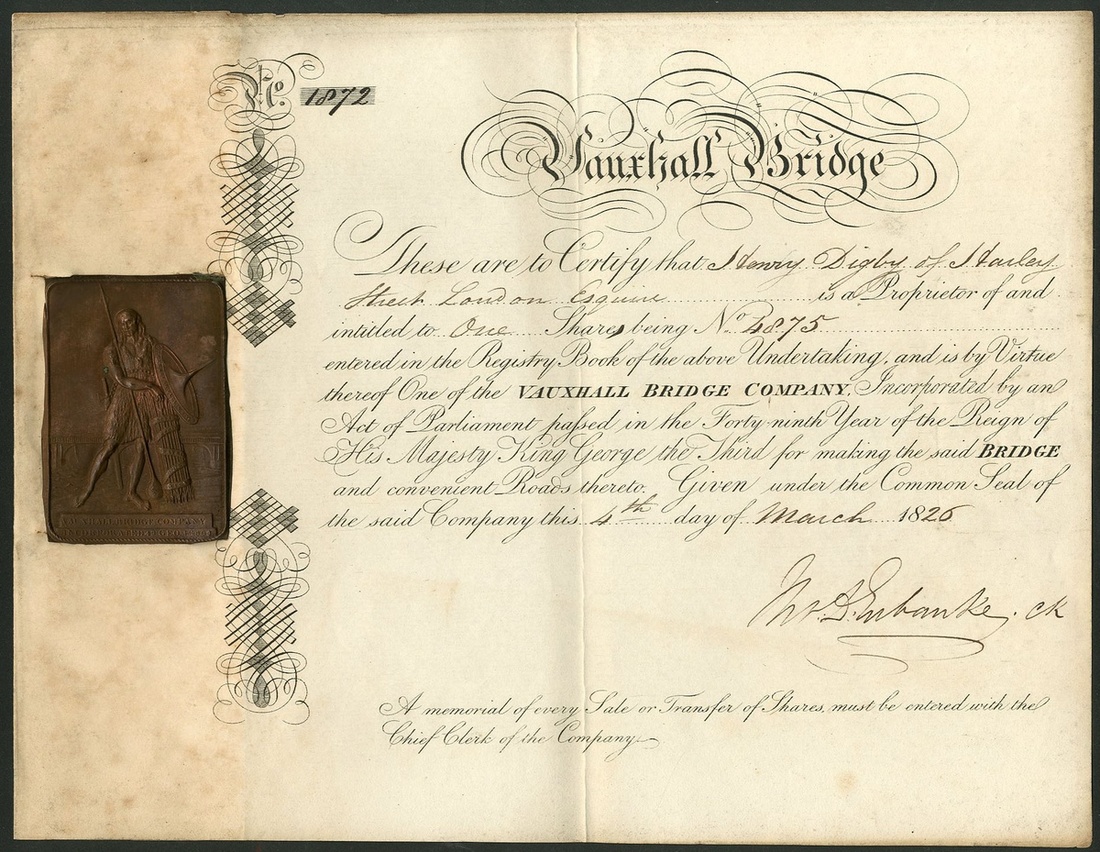 No. 1872
Vauxhall Bridge
These are to Certify that Henry Digby of Harley
Street London Esquire is a Proprietor of and
intitled to One Share being No. 4875
entered in the Registry Book of the above Undertaking, and is by Virtue
thereof One of the VAUXHALL BRIDGE COMPANY, Incorporated by an
Act of Parliament passed in the Forty-ninth Year of the Reign of
His Majesty King George the Third for making the said BRIDGE
and convenient Roads thereto. Given under the Common Seal of
the said Company this 4th day of March 1826
Eubanke. Ck
A memorial of every Sale or Transfer of Shares, must be entered with the
Chief Clerk of the Company.
VAUXHALL BRIDGE COMPANY